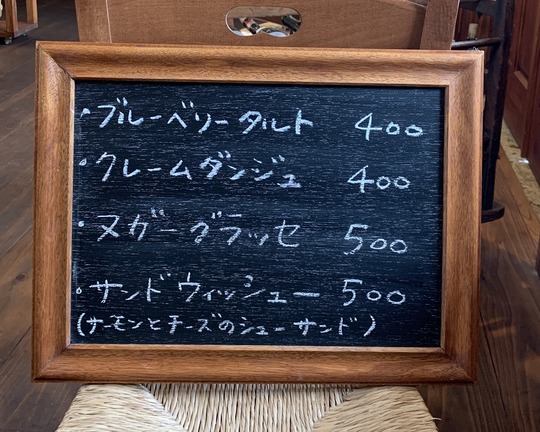 ・ブルーベリータルト 400
・クレームダンジュ 400
・ヌガーグラッセ 500
・サンドウィッシュー 500
(サーモンとチーズのシューサンド)